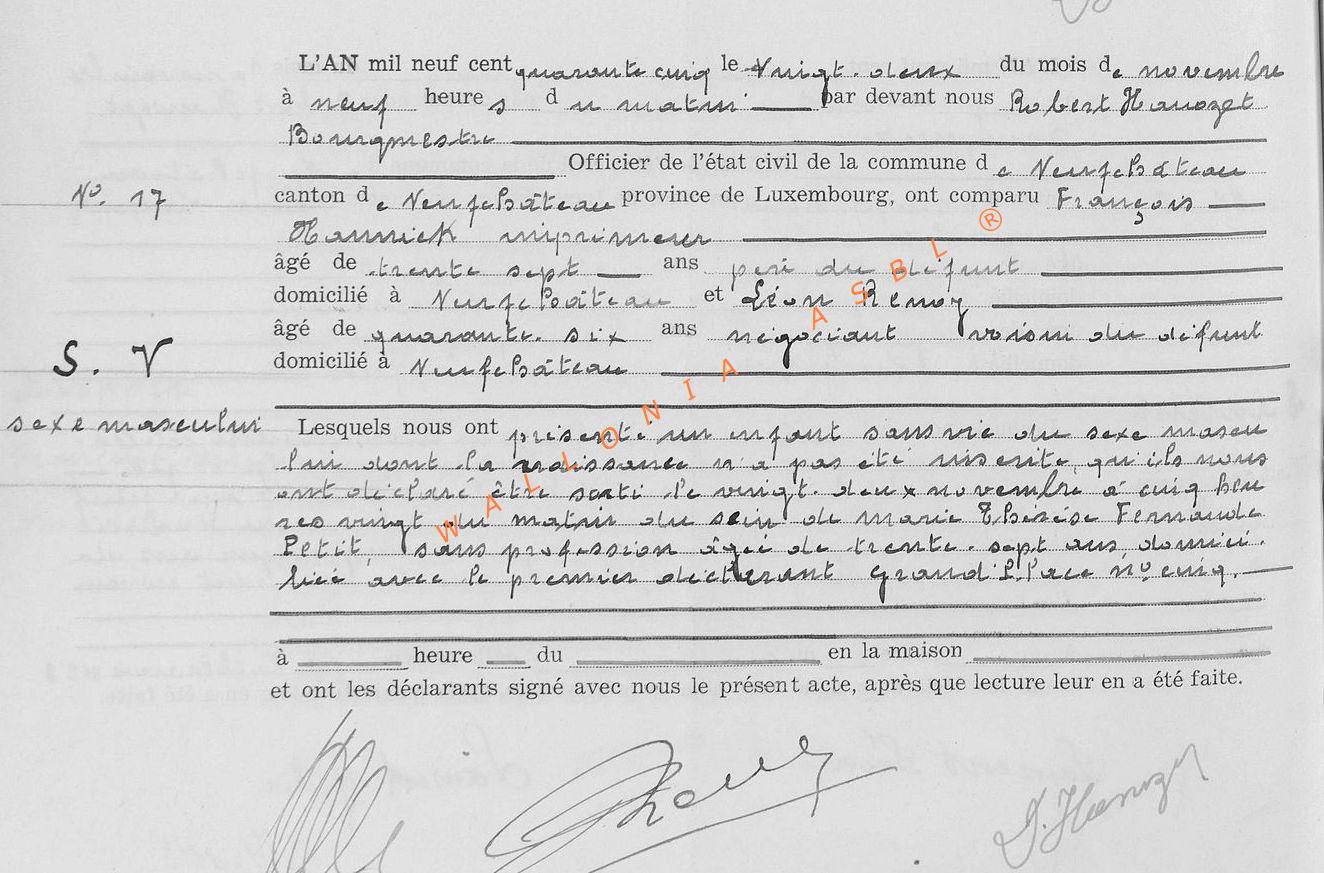 L'AN mil neuf cent quarante cinq le Vingt-deux du mois de novembre
à neuf heures du matin par devant nous Robert Hanozet
Bourgmestre
Officier de l'état civil de la commune de Neufchâteau
No. 17
canton de Neufchâteau province de Luxembourg, ont comparu François
Hannick imprimeur
âgé de trente sept ans père du défunt
domicilié à Neufchâteau et Léon Renoy
âgé de quarante-six ans négociant voisin du défunt
S. V
domicilié à Neufchâteau
sexe masculin
Lesquels nous ont présenté un enfant sans vie du sexe mascu
lin dont la naissance n'a pas été inscrite, qu'ils nous
ont déclaré être sorti le vingt-deux novembre à cinq heu
res vingt du matin du sein de Marie Thérèse Fernande
Petit, sans profession âgée de trente-sept ans, domici-
liée avec le premier déclarant Grand'Place No cinq.
à heure du en la maison
et ont les déclarants signé avec nous le présent acte, après que lecture leur en a été faite.
Hanozet
WALLONIA ASBL ®